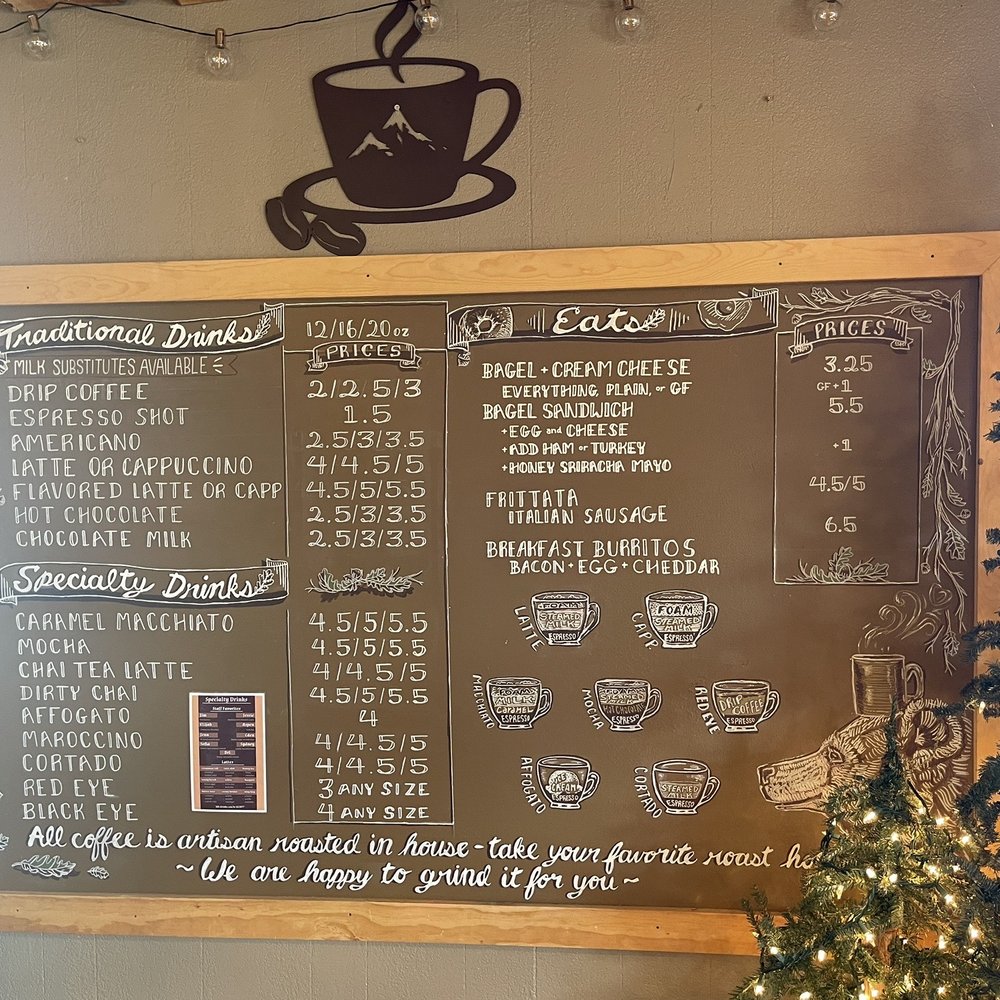 Traditional Drinks
12/16/20 oz
PRICES
MILK SUBSTITUTES AVAILABLE
DRIP COFFEE 2/2.5/3
ESPRESSO SHOT 1.5
AMERICANO 2.5/3/3.5
LATTE OR CAPPUCCINO 4/4.5/5
FLAVORED LATTE OR CAPP 4.5/5/5.5
HOT CHOCOLATE 2.5/3/3.5
CHOCOLATE MILK 2.5/3/3.5
Specialty Drinks
CARAMEL MACCHIATO 4.5/5/5.5
MOCHA 4.5/5/5.5
CHAI TEA LATTE 4/4.5/5
DIRTY CHAI 4.5/5/5.5
AFFOGATO 4
MAROCCINO 4/4.5/5
CORTADO 4/4.5/5
RED EYE 3 ANY SIZE
BLACK EYE 4 ANY SIZE
Specialty Drinks
Staff Favorites
Lattes
Eats
PRICES
BAGEL + CREAM CHEESE 3.25
EVERYTHING, PLAIN, or GF GF +1
BAGEL SANDWICH 5.5
+EGG and CHEESE
+ADD HAM or TURKEY +1
+HONEY SRIRACHA MAYO
FRITTATA 4.5/5
ITALIAN SAUSAGE
BREAKFAST BURRITOS 6.5
BACON + EGG + CHEDDAR
LATTE
FOAM
STEAMED
MILK
ESPRESSO
CAPP
FOAM
STEAMED
MILK
ESPRESSO
MACCHIATO
FOAM
MILK
CARAMEL
ESPRESSO
MOCHA
STEAMED
MILK
HOT CHOCOLATE
ESPRESSO
RED EYE
DRIP
COFFEE
ESPRESSO
AFFOGATO
ICE
CREAM
ESPRESSO
CORTADO
STEAMED
MILK
ESPRESSO
All coffee is artisan roasted in house - take your favorite roast
~We are happy to grind it for you~